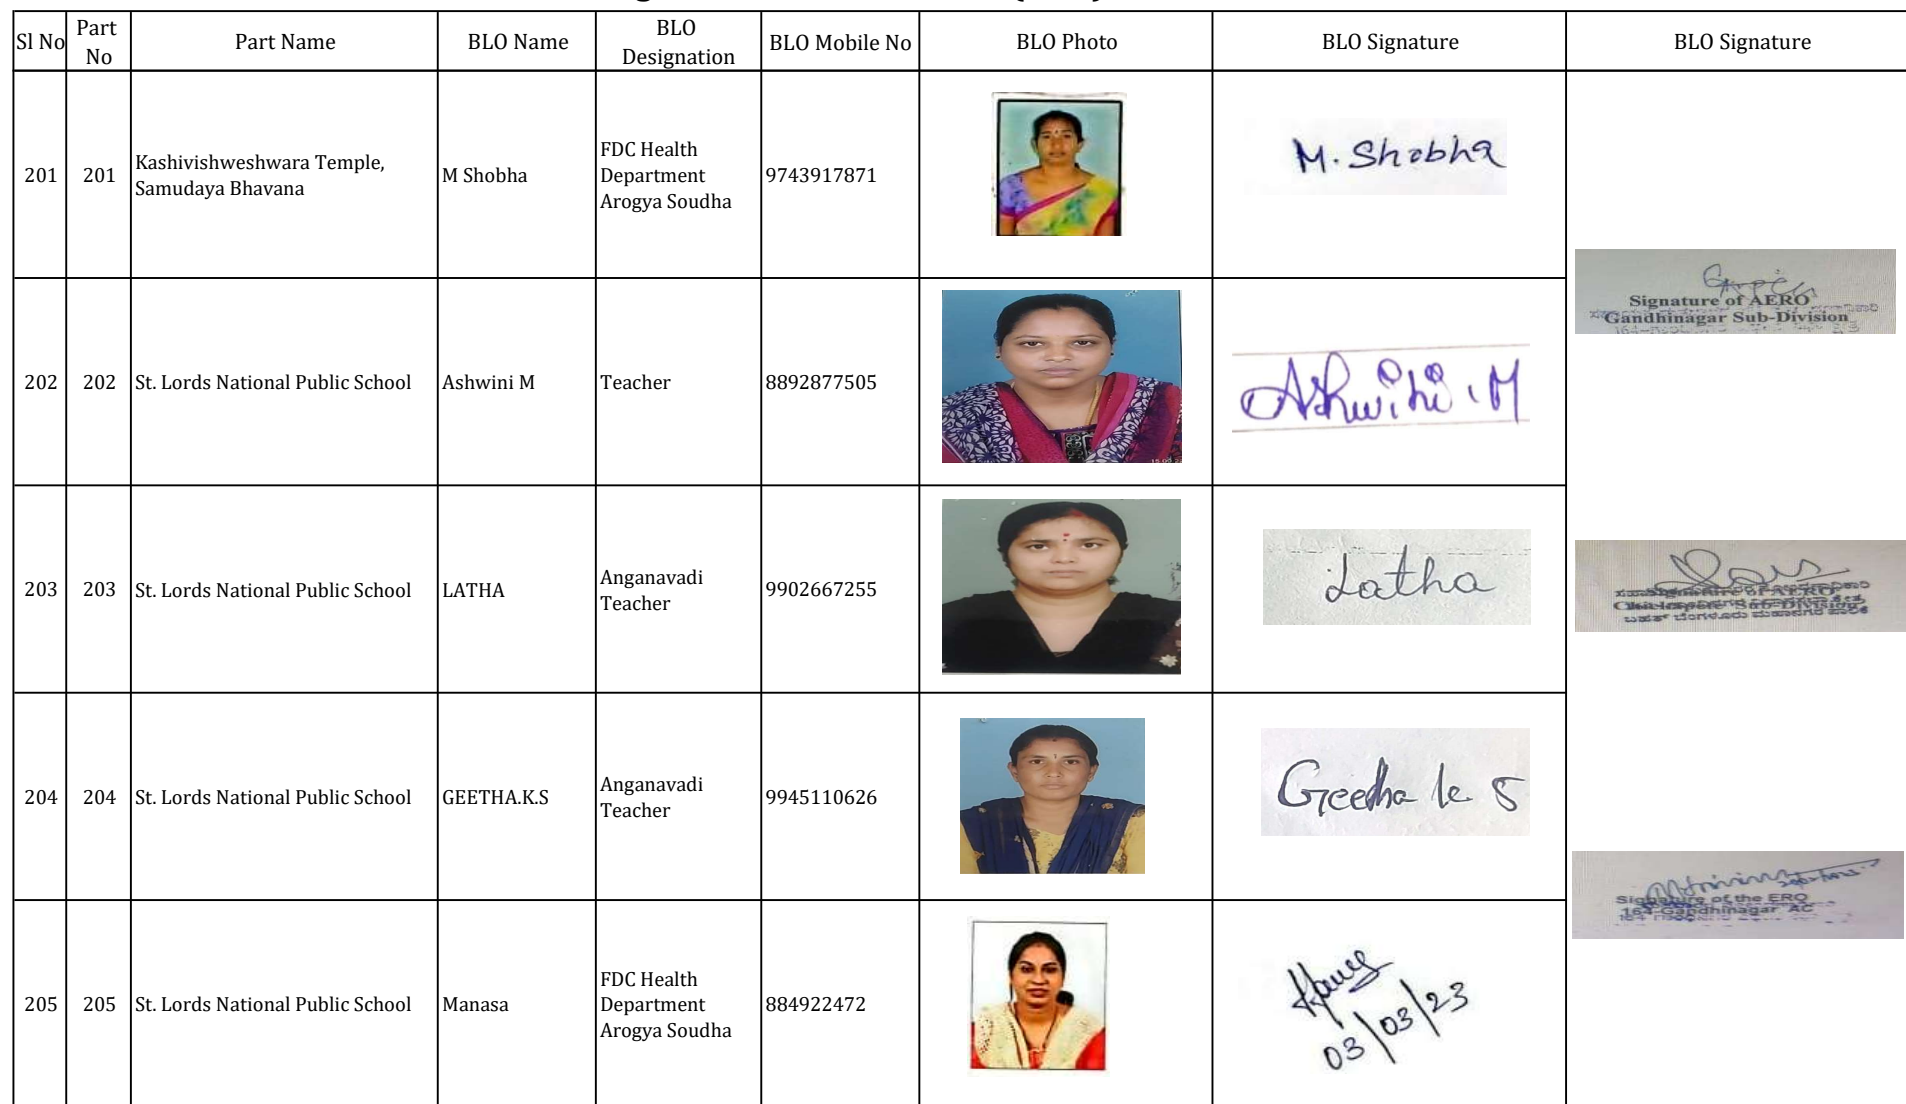 Sl No Part No Part Name BLO Name BLO Designation BLO Mobile No BLO Photo BLO Signature BLO Signature
201 201 Kashivishweshwara Temple, Samudaya Bhavana M Shobha FDC Health Department Arogya Soudha 9743917871 M. Shobha
Signature of AERO
Gandhinagar Sub-Division
202 202 St. Lords National Public School Ashwini M Teacher 8892877505 Ashwini .M
203 203 St. Lords National Public School LATHA Anganavadi Teacher 9902667255 Latha
Signature of AERO
Sub-Division
204 204 St. Lords National Public School GEETHA.K.S Anganavadi Teacher 9945110626 Geetha K S
Signature of the ERO
164-Gandhinagar AC
205 205 St. Lords National Public School Manasa FDC Health Department Arogya Soudha 884922472
03/03/23